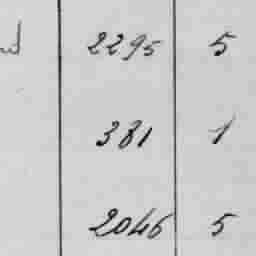 2295 5
381 1
2046 5